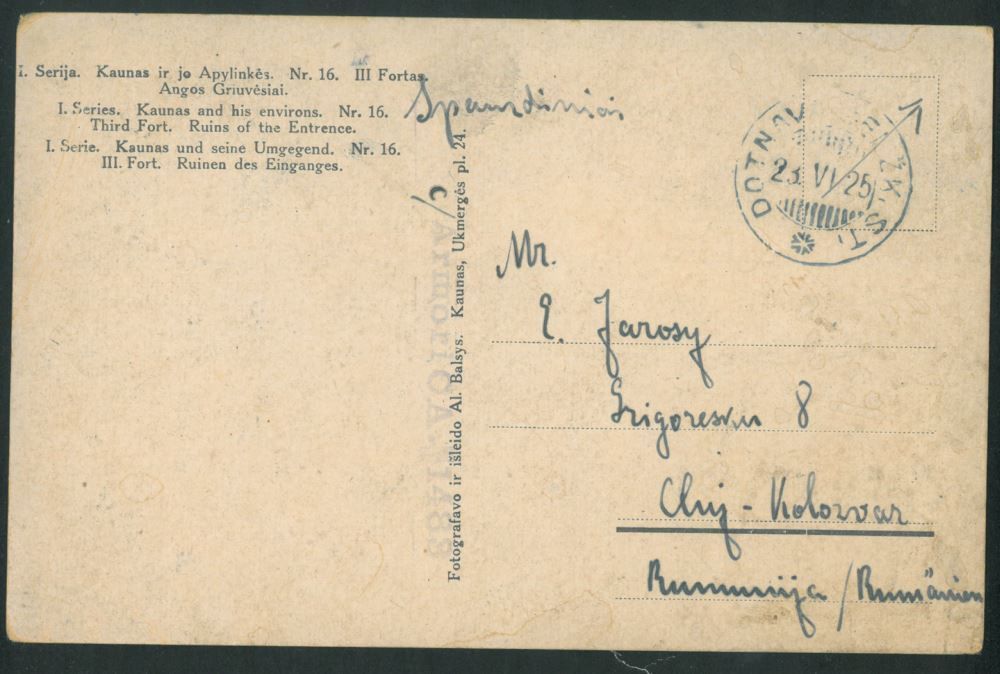 I. Serija. Kaunas ir jo Apylinkės. Nr. 16. III Fortas.
Angos Griuvėsiai.
I. Series. Kaunas and his environs. Nr. 16.
Third Fort. Ruins of the Entrence.
I. Serie. Kaunas und seine Umgegend. Nr. 16.
III. Fort. Ruinen des Einganges.
Spausdiniai
Fotografavo ir išleido Al. Balsys. Kaunas, Ukmergės pl. 24.
DOTNAV ŽK. ST.
23. VI 25
Mr.
E. Jarosy
Grigorescu 8
Cluj - Kolozvar
Rumunija / Rumänien